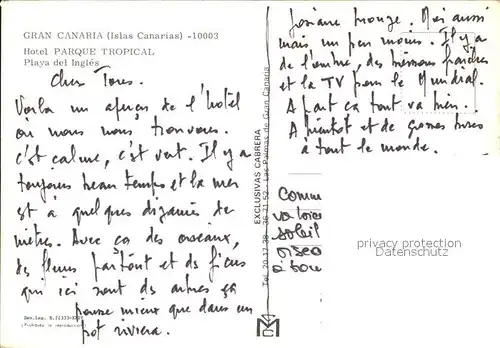 GRAN CANARIA (Islas Canarias) -10003
Hotel PARQUE TROPICAL
Playa del Inglés
Cher Tous.
Voila un aperçu de l'hotel
ou nous nous trouvons.
c'est calme, c'est vert. Il y a
toujours beau temps et la mer
est à quelques dizaines de
mètres. Avec ça des oiseaux,
des fleurs partout et des ficus
qui ici sont des arbres ça
pousse mieux que dans un
pot riviera.
EXCLUSIVAS CABRERA
Tel. 20 17 39 - 36 71 52 - Las Palmas de Gran Canaria
Josiane bronze. Moi aussi
mais un peu moins. Il y a
de l'ombre, des boissons fraiches
et la TV pour le Mundial.
A part ca tout va bien!
A bientot et de grosses bises
à tout le monde.
Comm
va
soleil
oisea
à
privacy protection
Datenschutz